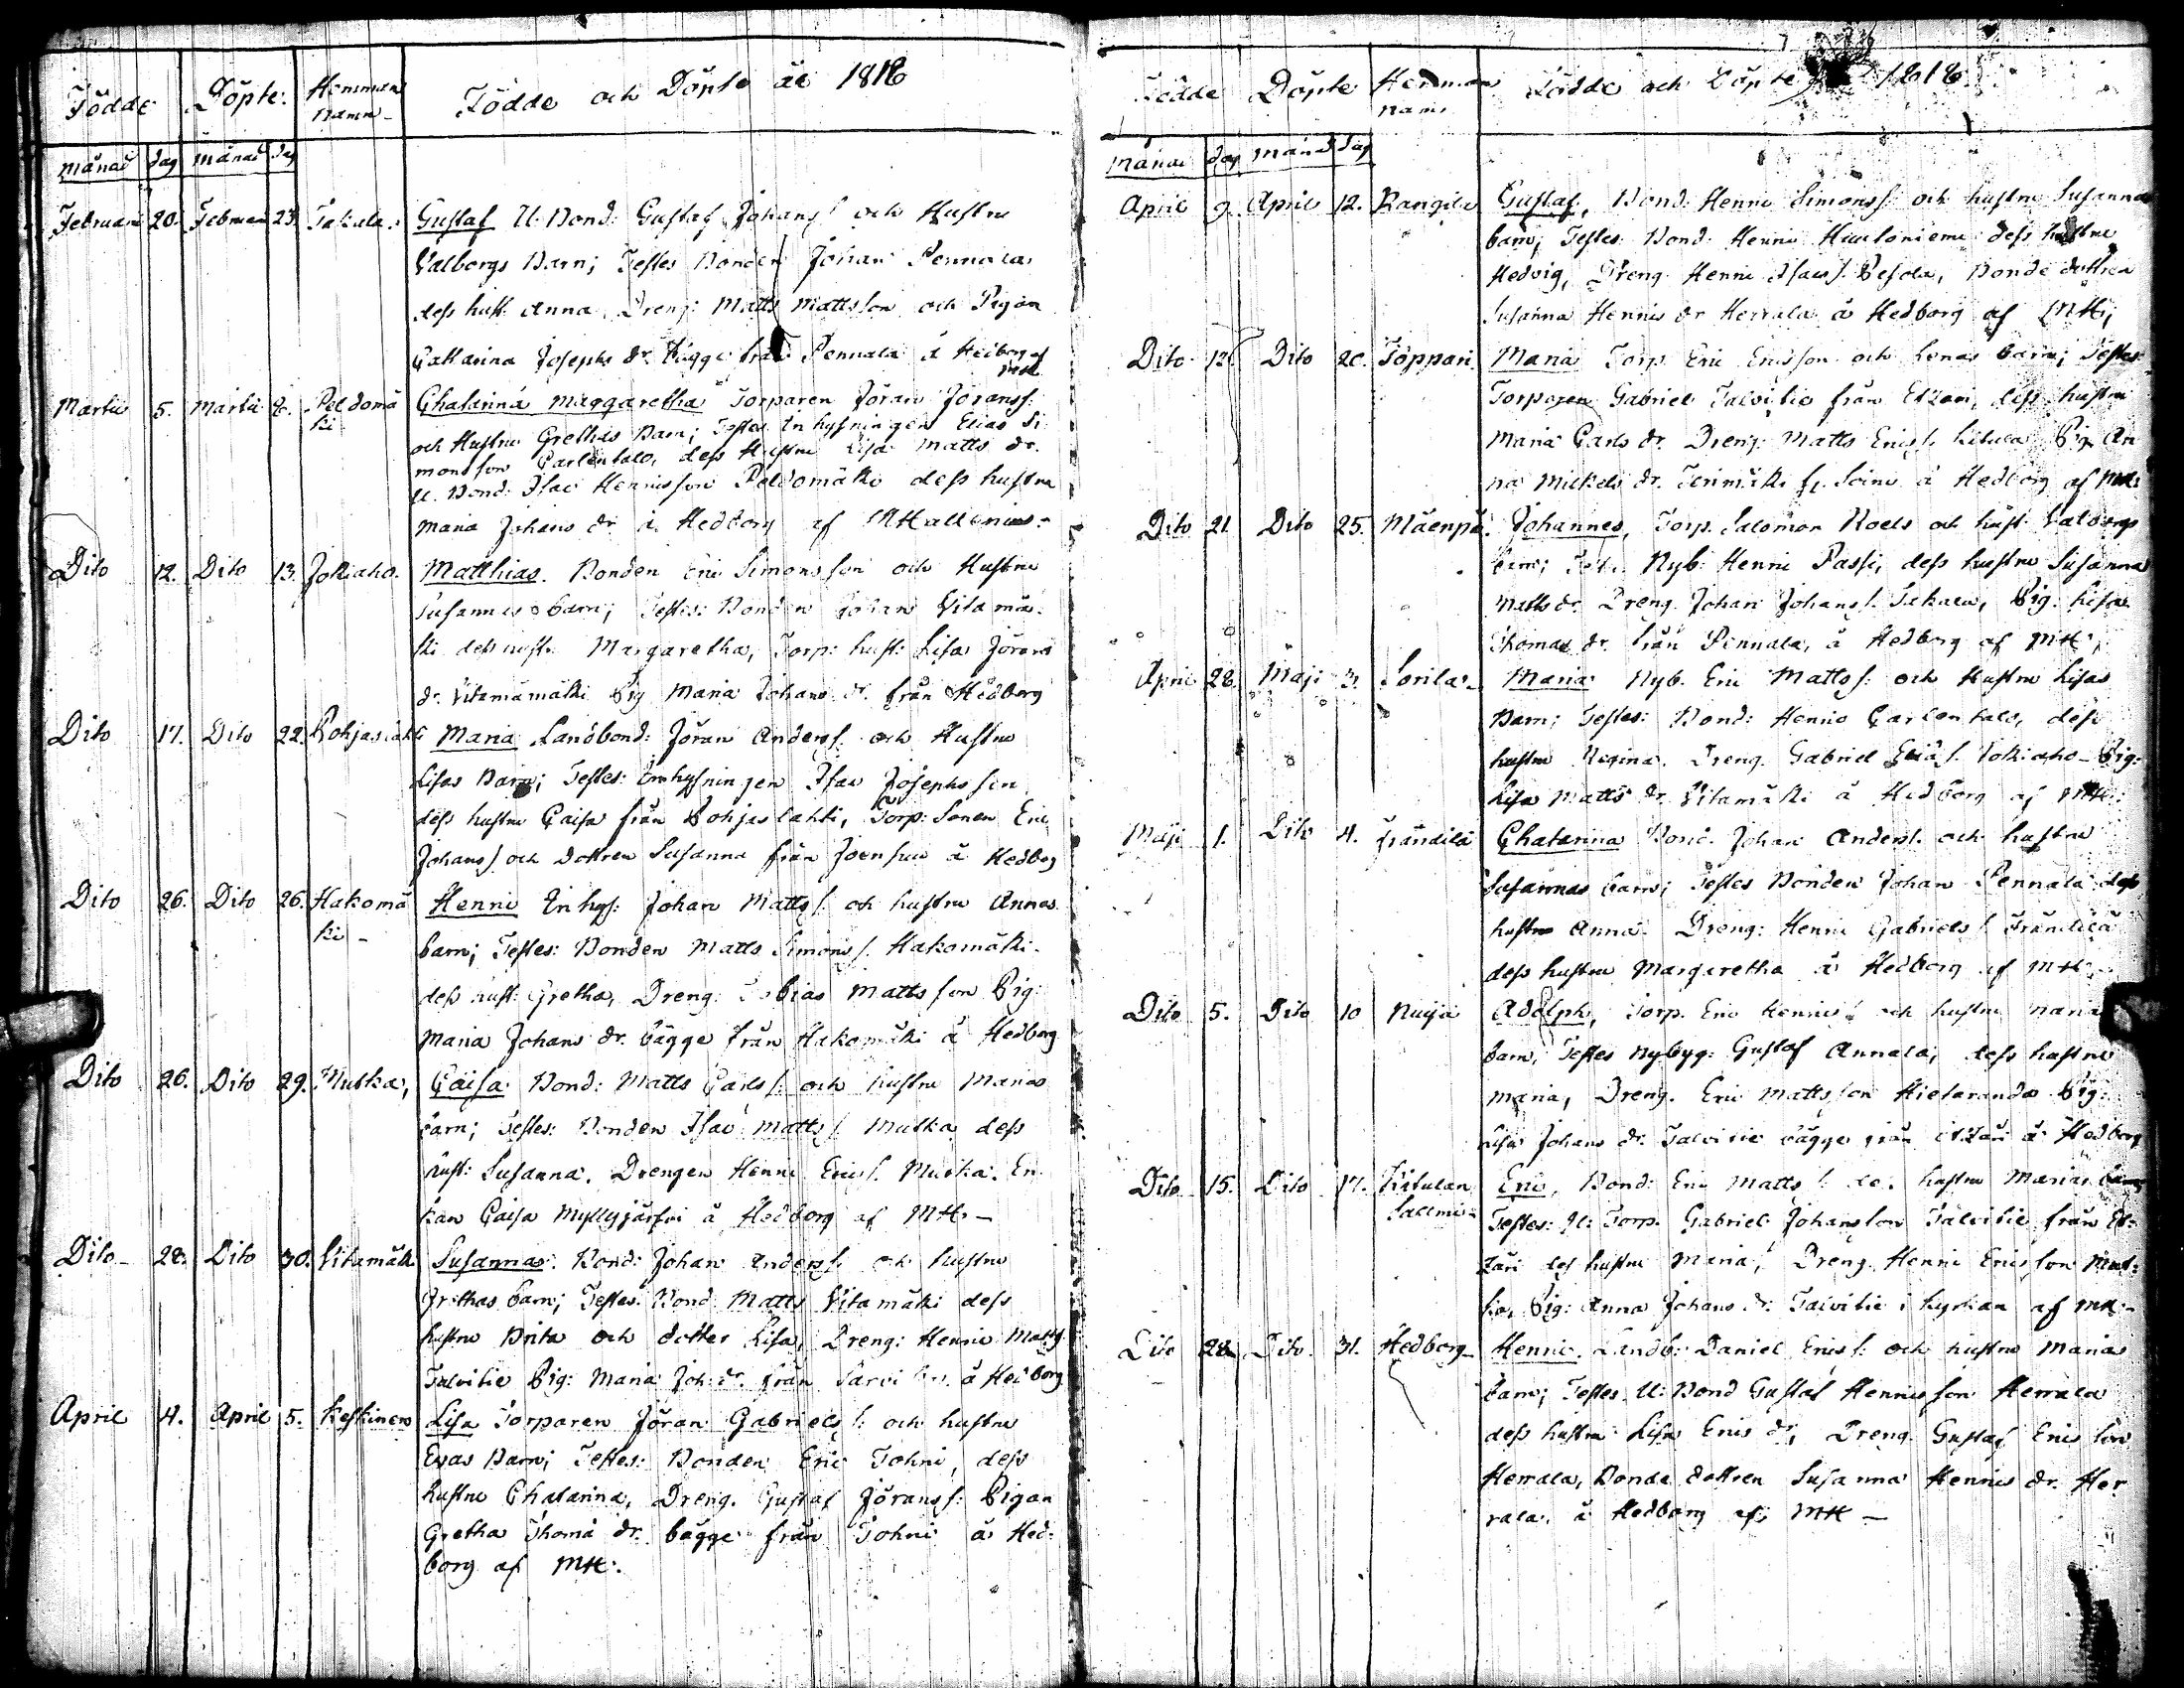 Födde Döpte: Hemman
namn
Födde och Döpte år 1818
månad dag månad dag
Februari 20. Februari 23. Takala. Gustaf U. Bond: Gustaf Johans s. och Hustru
Valborgs Barn; Testes Bonden Johan Pennala
dess hust: Anna, Dreng: Matts Mattsson och Pigan
Cattarina Josephs dr. bägge från Pennala å Hedborg af
MH.
Martii 5. Martii 8. Peldomä Chatarina Margaretha Torparen Jöran Jörans s:
ki och Hustru Grethas Barn; Testes Inhysningen Elias Si
monsson Carlentalo, dess Hustru Lisa Matts dr.
U. Bond: Isac Henricsson Peldomäki dess hustru
Maria Johans dr. å Hedborg af MHallenius-
Dito 12. Dito 13. Jokiaho. Matthias. Bonden Eric Simonsson och Hustru
Susannas barn; Testes: Bonden Johan Vitamä-
ki dess hustr. Margaretha, Torp: hust: Lisa Jörans
dr. Vitamämäki Pig Maria Johans dr. från Hedborg
Dito 17. Dito 22. Pohjaslahti Maria Landbond: Jöran Anders s. och Hustru
Lisas Barn; Testes: Inhysningen Isac Josephsson
dess hustru Caisa från Pohjaslahti, Torp: Sonen Eric
Johans s. och dottren Susanna från Joensuu å Hedborg
Dito 26. Dito 26. Hakomä Henric Inhys: Johan Matts s. och hustru Annas
ki - barn; Testes: Bonden Matts Simons s. Hakomäki-
dess hust: Gretha, Dreng: Tobias Mattsson Pig:
Maria Johans dr. bägge från Hakomäki å Hedborg
Dito 26. Dito 29. Mutka, Caisa Bond: Matts Carls s. och hustru Marias
barn; Testes: Bonden Isac Matts s. Mutka dess
hust: Susanna. Drengen Henric Erics s. Mutka. En
kan Caisa Myllyjärfvi å Hedborg af MH. -
Dito - 28. Dito 30. Vitamäki Susanna. Bond: Johan Anders s. och hustru
Grethas barn; Testes. Bond Matts Vitamäki dess
hustru Brita och dotter Lisa, Dreng: Henric Matts s.
Talvitie Pig: Maria Joh: dr. från å Hedborg
April 4. April 5. Keskinen Lisa Torparen Jöran Gabriels s: och hustru
Evas Barn; Testes: Bonden Eric Tohni, dess
hustru Chatarina, Dreng. Gustaf Jörans s: Pigan
Gretha Thomæ dr. bägge från Tohni å Hed-
borg af MH:
Födde Döpte Hemman
namn
Födde och Döpte 1818.
Månad dag månad dag
April 9. April 12. Rangila Gustaf, Bond: Henric Simons s: och hustru Susannas
barn; Testes: Bond: Henric dess hustru
Hedvig, Dreng Henric Isacs s. Vesola, Bonde dottren
Susanna Henrics dr Herrala å Hedborg af MH;
Dito 12. Dito 20. Töppari. Maria Torp Eric Ericsson och Lenas barn; Testes:
Torparen Gabriel Talvitie från Etzäri, dess hustru
Maria Carls dr. Dreng: Matts Erics s. Kitula, Pig. An
na Mickels dr. fr. Soini å Hedborg af MH:
Dito 21. Dito 25. Mäenpä. Johannes, Torp. Salomon Roels och hust: Valborgs
barn; Test: Nyb: Henric Passi, dess hustru Susanna
Matts dr. Dreng. Johan Johans s. Takala, Pig: Lisa
Thomas dr. från Pennala, å Hedborg af MH;
April 28. Maji 3. Sorila- Maria Nyb. Eric Matts s: och Hustru Lisas
Barn; Testes: Bond: Henric Carlentalo, dess
hustru Regina. Dreng. Gabriel Eliæ s. Jokiaho - Pig:
Lisa Matts dr. Vitamäki å Hedborg af MH:
Maji 1. Dito 4. Frändilä Chatarina Bond. Johan Anders s. och hustru
Susannas barn; Testes Bonden Johan Pennala dess
hustru Anna. Dreng: Henric Gabriels s. Frändilä
dess hustru Margaretha å Hedborg af MH.
Dito 5. Dito 10 Nuija Adolph, Torp. Eric Henrics s. och hustru Marias
barn, Testes Nybyg: Gustaf Annala, dess hustru
Maria, Dreng. Eric Mattsson Hietaranda Pig:
Lisa Johans dr. Talvitie bägge från Etzäri å Hedborg
Dito 15. Dito 17. Kitulan Eric, Bond: Eric Matts s. hustru Marias barn
Salmi- Testes: Torp. Gabriel Johansson Talvitie från Et-
zäri dess hustru Maria, Dreng Henric Ericsson Mut-
ka, Pig: Anna Johans dr. Talvitie i kyrkan af MH:-
Dito 28 Dito. 31. Hedborg - Henric. Landb: Daniel Erics s: och hustru Marias
barn; Testes U: Bond Gustaf Henricsson Herrala
dess hustru Lisa Erics dr, Dreng Gustaf Ericsson
Herrala, Bonde dottren Susanna Henrics dr. Her
rala, å Hedborg af MH -